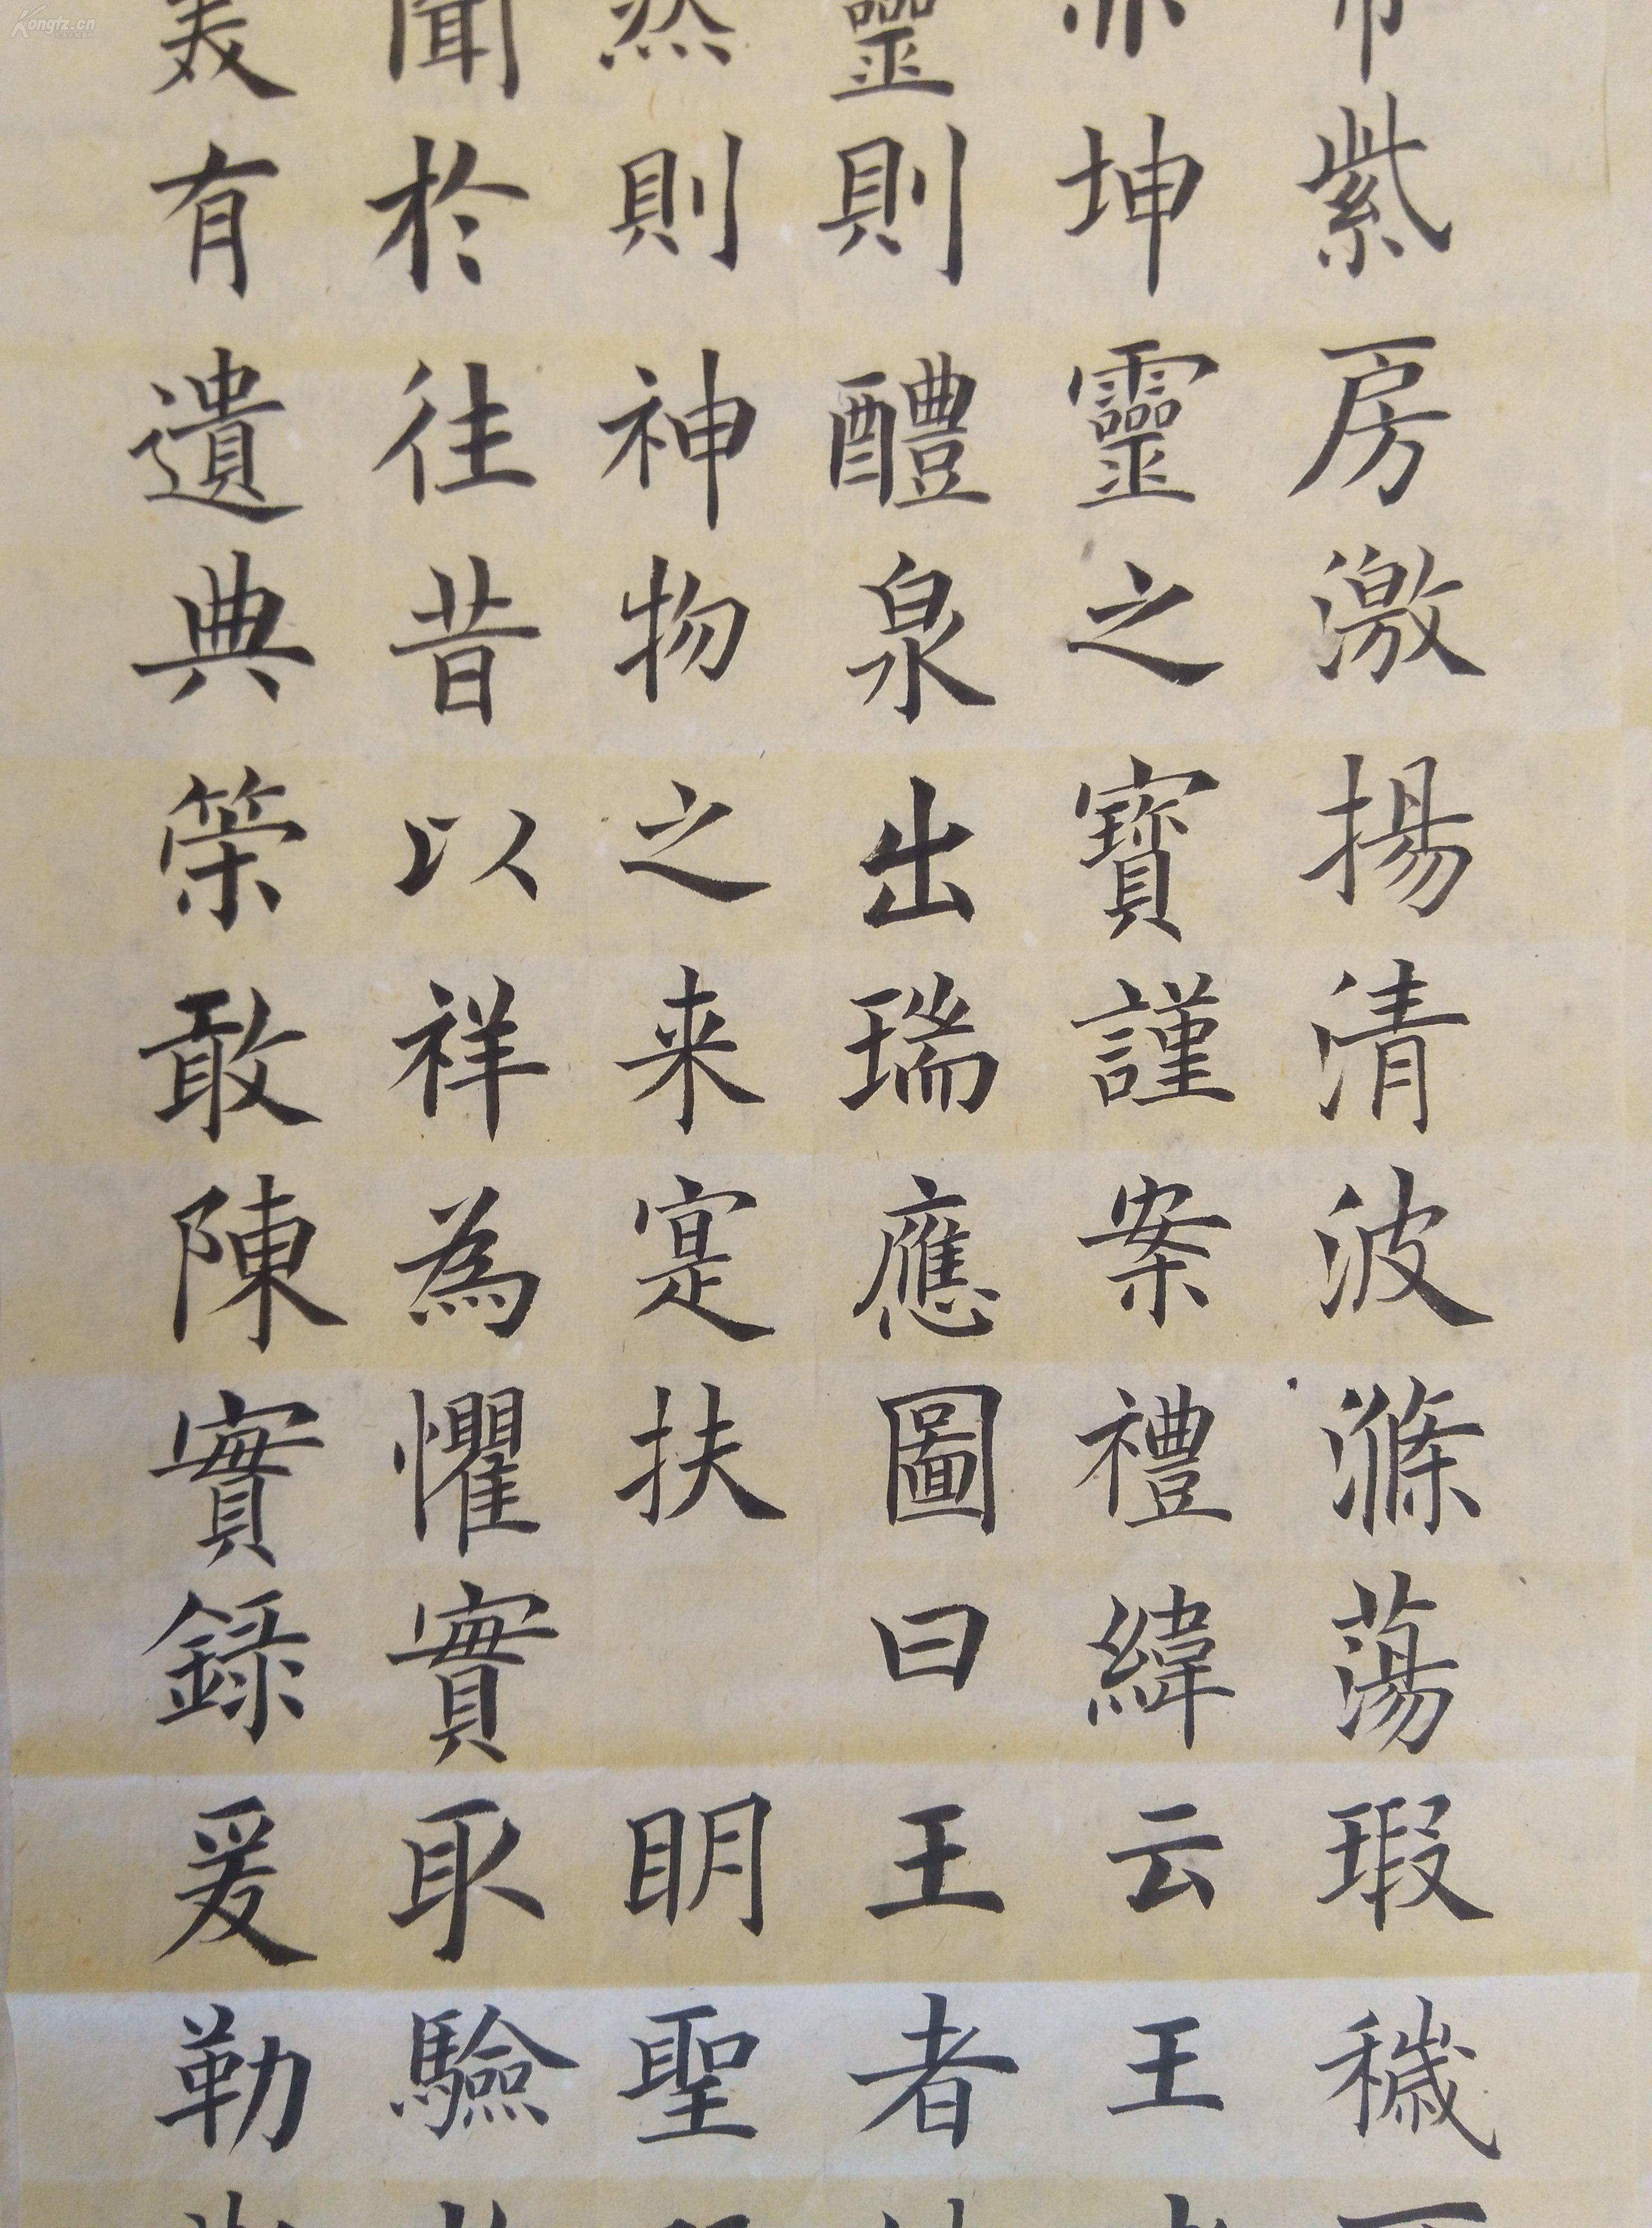 紫房激揚清波滌蕩瑕穢
坤靈之寶謹案禮緯云王
靈則醴泉出瑞應圖曰王者
然則神物之来寔扶 明聖
聞於往昔以祥為懼實取驗
美有遺典策敢陳實録爰勒
Kongfz.cn